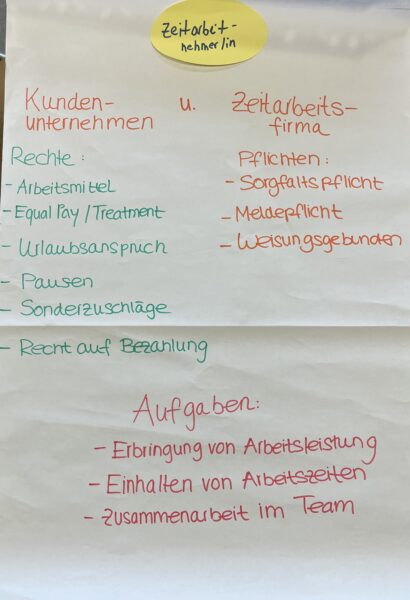 Zeitarbeit-
nehmer/in
Kunden-
unternehmen
u.
Zeitarbeits-
firma
Rechte:
- Arbeitsmittel
- Equal Pay / Treatment
- Urlaubsanspruch
- Pausen
- Sonderzuschläge
- Recht auf Bezahlung
Pflichten:
- Sorgfaltspflicht
- Meldepflicht
- Weisungsgebunden
Aufgaben:
- Erbringung von Arbeitsleistung
- Einhalten von Arbeitszeiten
- Zusammenarbeit im Team